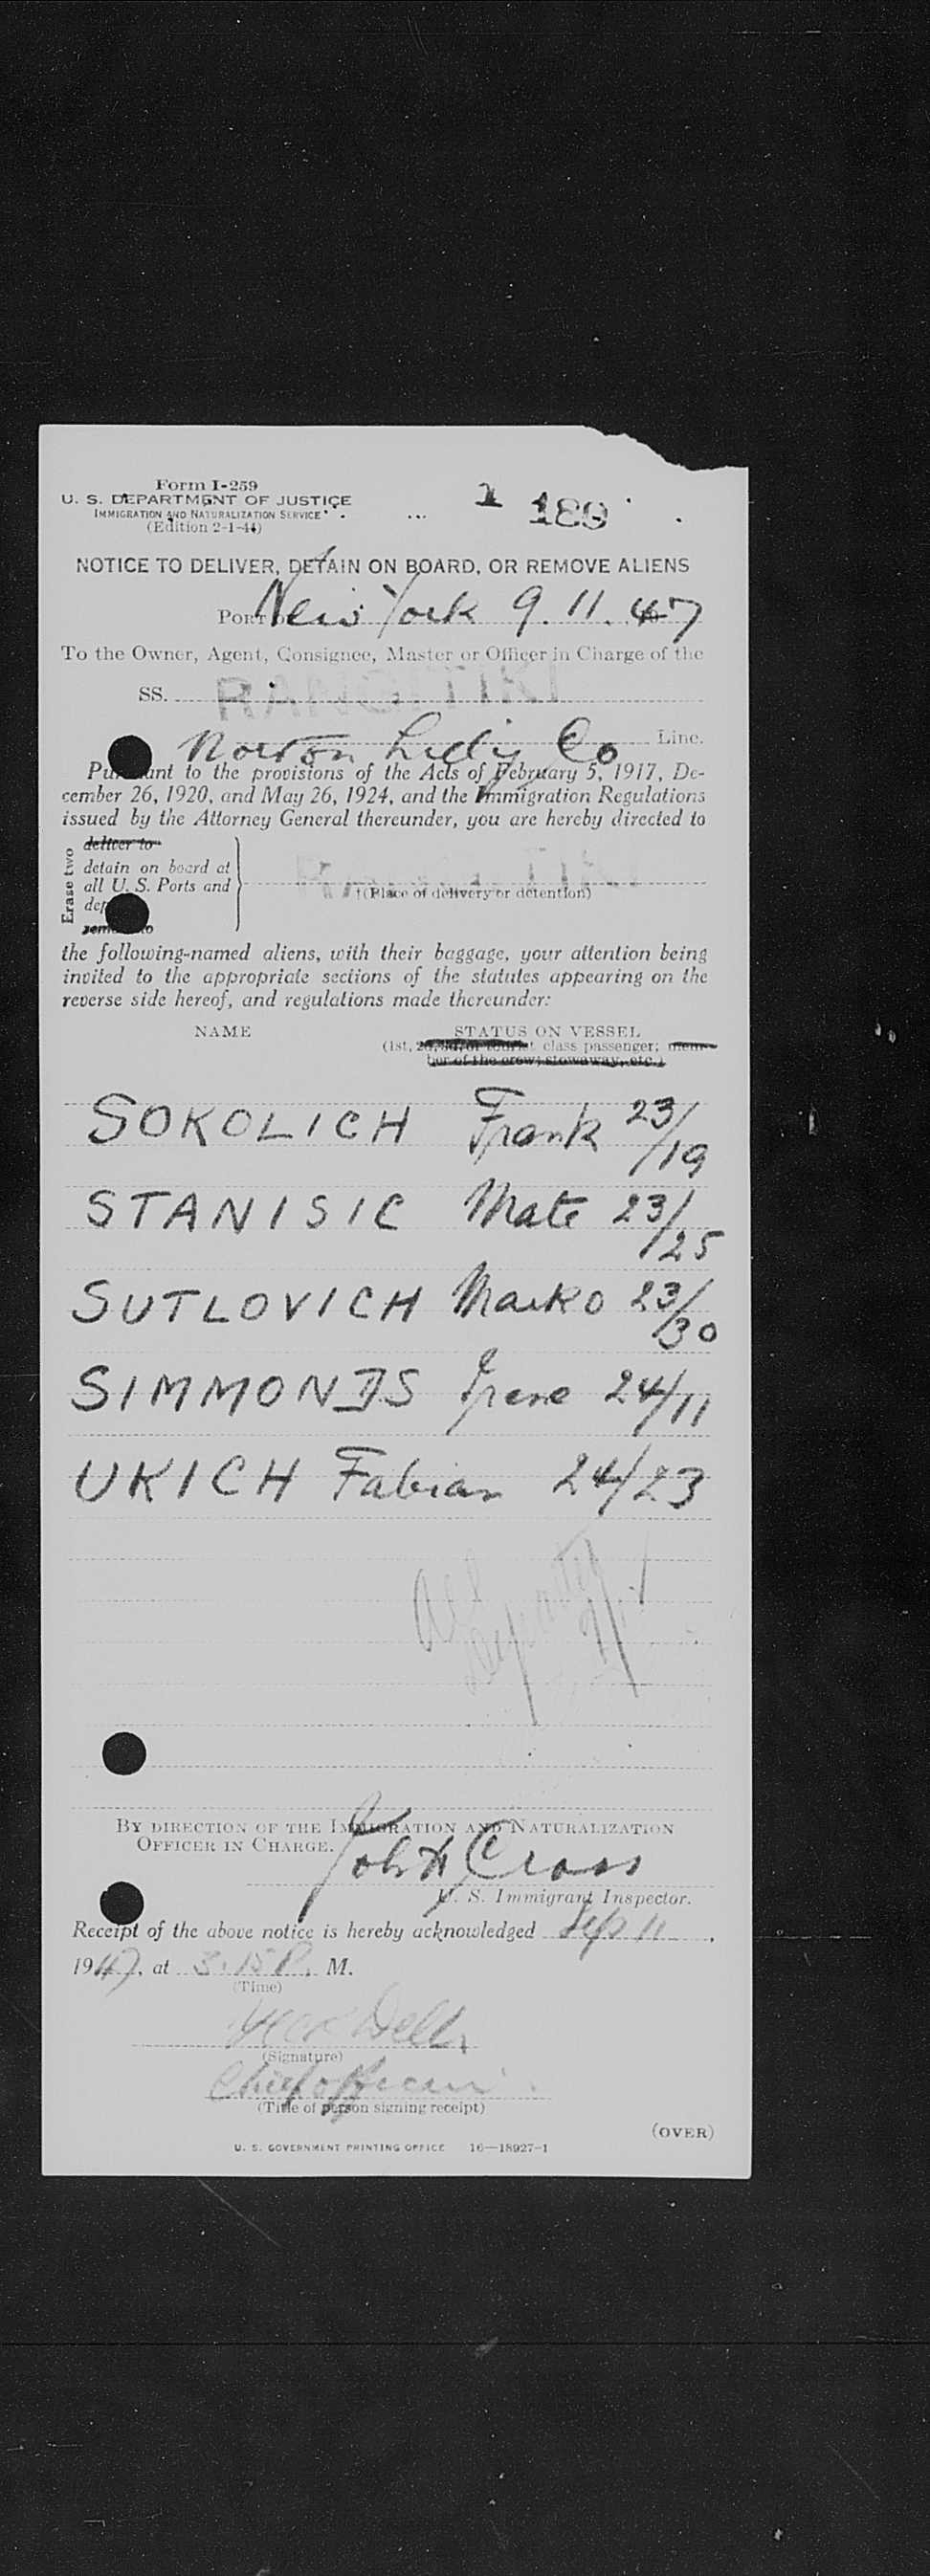 Form I-259
U. S. DEPARTMENT OF JUSTICE
IMMIGRATION AND NATURALIZATION SERVICE
(Edition 2-1-44)
1 189
NOTICE TO DELIVER, DETAIN ON BOARD, OR REMOVE ALIENS
PORT OF New York 9. 11. 47
To the Owner, Agent, Consignee, Master or Officer in Charge of the
SS. RANGITIKI
Norton Lilly Co Line.
Pursuant to the provisions of the Acts of February 5, 1917, De-
cember 26, 1920, and May 26, 1924, and the Immigration Regulations
issued by the Attorney General thereunder, you are hereby directed to
Erase two
deliver to
detain on board at
all U. S. Ports and
RANGITIKI
(Place of delivery or detention)
remove to
the following-named aliens, with their baggage, your attention being
invited to the appropriate sections of the statutes appearing on the
reverse side hereof, and regulations made thereunder:
NAME STATUS ON VESSEL
(1st, 2d, 3d, or tourist class passenger; mem-
ber of the crew; stowaway, etc.)
SOKOLICH Frank 23/19
STANISIC Mate 23/25
SUTLOVICH Marko 23/30
SIMMONDS Irene 24/11
UKICH Fabian 24/23
All
Departed
BY DIRECTION OF THE IMMIGRATION AND NATURALIZATION
OFFICER IN CHARGE.
Cross
U. S. Immigrant Inspector.
Receipt of the above notice is hereby acknowledged Sep 11,
1947, at 3.15 P. M.
(Time)
(Signature)
Chief officer
(Title of person signing receipt)
(OVER)
U. S. GOVERNMENT PRINTING OFFICE 16—18927-1